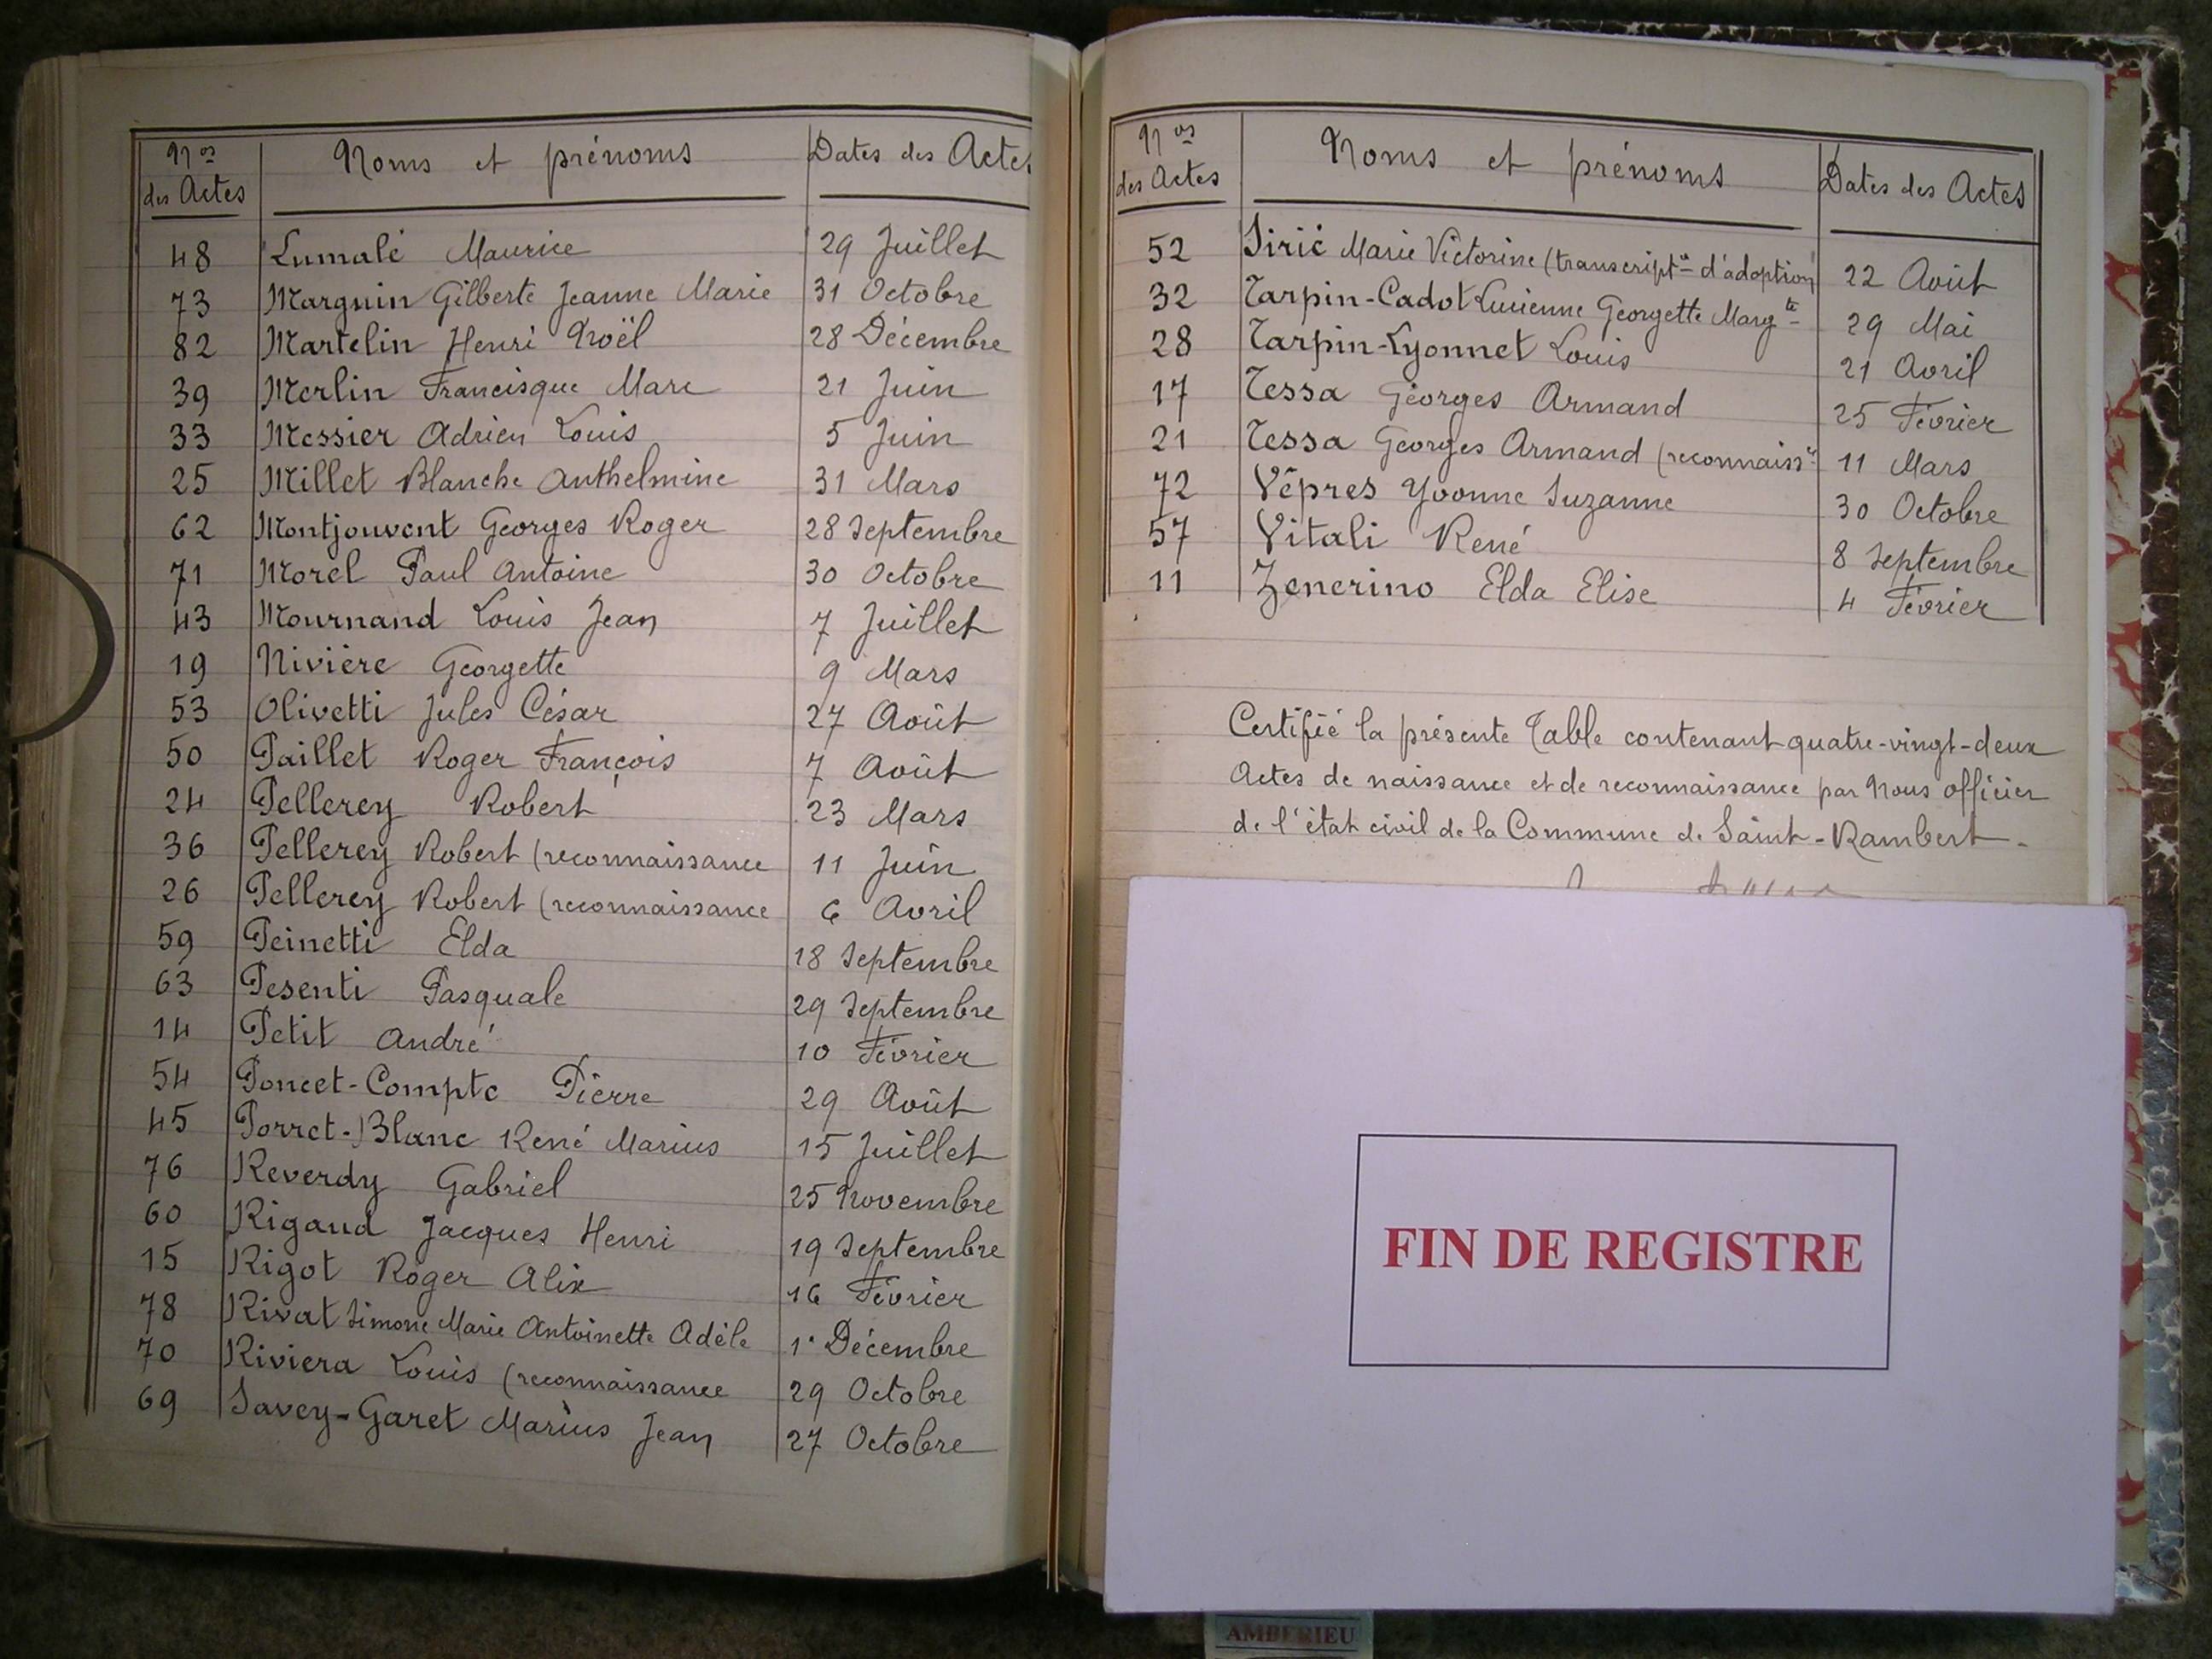 Nos des Actes Noms et prénoms Dates des Actes
48 Lumalé Maurice 29 Juillet
73 Marguin Gilberte Jeanne Marie 31 Octobre
82 Martelin Henri Noël 28 Décembre
39 Merlin Francisque Marc 21 Juin
33 Messier Adrien Louis 5 Juin
25 Millet Blanche Anthelmine 31 Mars
62 Montjouvent Georges Roger 28 Septembre
71 Morel Paul Antoine 30 Octobre
43 Mournand Louis Jean 7 Juillet
19 Nivière Georgette 9 Mars
53 Olivetti Jules César 27 Août
50 Paillet Roger François 7 Août
24 Pellerey Robert 23 Mars
36 Pellerey Robert (reconnaissance 11 Juin
26 Pellerey Robert (reconnaissance 6 Avril
59 Peinetti Elda 18 Septembre
63 Pesenti Pasquale 29 Septembre
14 Petit André 10 Février
54 Poncet-Compte Pierre 29 Août
45 Porret-Blanc René Marius 15 Juillet
76 Reverdy Gabriel 25 Novembre
60 Rigaud Jacques Henri 19 Septembre
15 Rigot Roger Alix 16 Février
78 Rivat Simone Marie Antoinette Adèle 1er Décembre
70 Riviera Louis (reconnaissance 29 Octobre
69 Savey-Garet Marius Jean 27 Octobre
Nos des Actes Noms et prénoms Dates des Actes
52 Sirié Marie Victorine (transcriptn d'adoption) 22 Août
32 Tarpin-Cadot Lucienne Georgette Margte 29 Mai
28 Tarpin-Lyonnet Louis 21 Avril
17 Tessa Georges Armand 25 Février
21 Tessa Georges Armand (reconnaisse 11 Mars
72 Vêpres Yvonne Suzanne 30 Octobre
57 Vitali René 8 Septembre
11 Zenerino Elda Elise 4 Février
Certifié la présente Table contenant quatre-vingt-deux
Actes de naissance et de reconnaissance par Nous officier
de l'état civil de la Commune de Saint-Rambert.
FIN DE REGISTRE
AMBERIEU